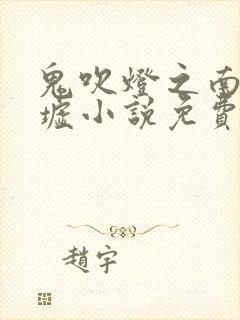 鬼吹燈之南
墟小說免費
趙宇